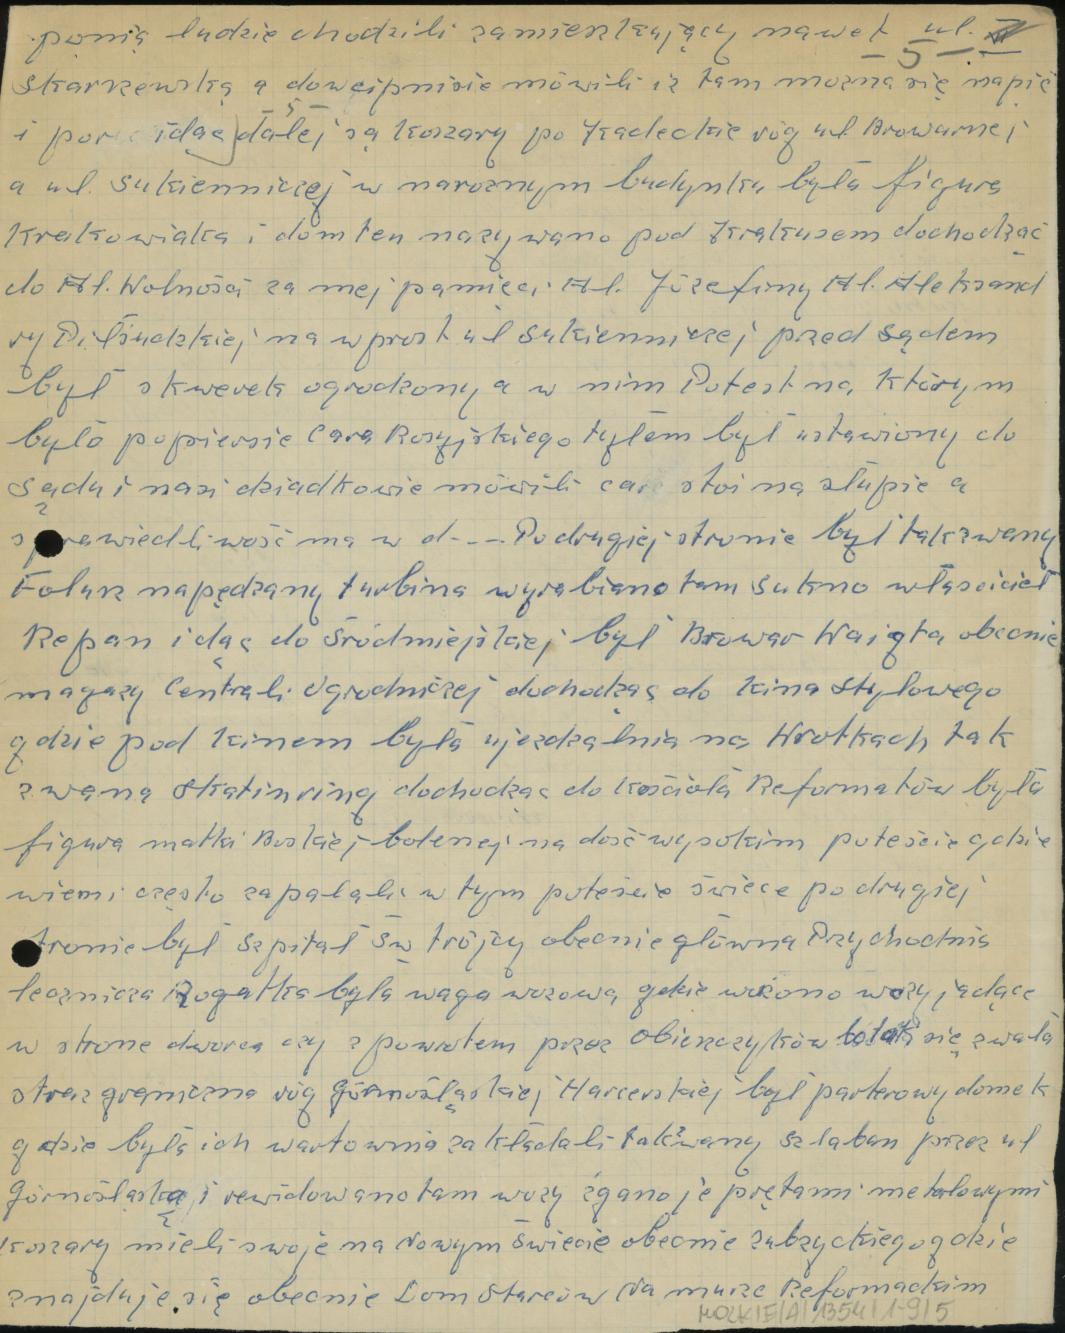 pomią ludzie chodzili zamieszkający nawet ul.
- 5 -
Skarszewską a dowcipnisie mówili iż tam można się napić
- 5 -
i idąc dalej są koszary po Kadeckie róg ul Browarnej
a ul. Sukienniczej w narożnym budynku była figura
Krakowiaka i dom ten nazywano pod Krakusem dochodząc
do Al. Wolności za mej pamięci Al. Józefiny Al. Aleksand
ry Piłsudzkiej na wprost ul Sukienniczej przed Sądem
był skwerek ogrodzony a w nim Potest na którym
było popiersie Cara Rosyjskiego tyłem był ustawiony do
Sądu i nasi dziadkowie mówili car stoi na słupie a
sprawiedliwość ma w d---- Po drugiej stronie był takzwany
Folusz napędzany turbiną wyrabiano tam sukno właściciel
Repan idąc do Śródmiejskiej był Browar Waigta obecnie
magazy Centrali Ogrodniczej dochodząc do kina Stylowego
gdzie pod kinem była ujezdzalnia na Wrotkach tak
zwana skatinring dochodząc do kościoła Reformatów była
figura matki Boskiej bolenej na dość wysokim poteście gdzie
wierni często zapalali w tym poteście świece po drugiej
stronie był Szpital Św trójcy obecnie główna Przychodnia
lecznicza Rogatka była waga wozowa gdzie ważono wozy jadące
w strone dworca czy z powrotem przez Obieszczyków się zwała
straz graniczna róg Górnośląskiej Harcerskiej był parterowy domek
gdzie była ich wartownia zakładali takzwany szlaban przez ul
Górnośląską i rewidowano tam wozy żgano je prętami metalowymi
koszary mieli swoje na Nowym Świecie obecnie Zubrzyckiego gdzie
znajduje się obecnie Dom Starców Na murze Reformackim
MOZK/E/A/1354/1-9/5